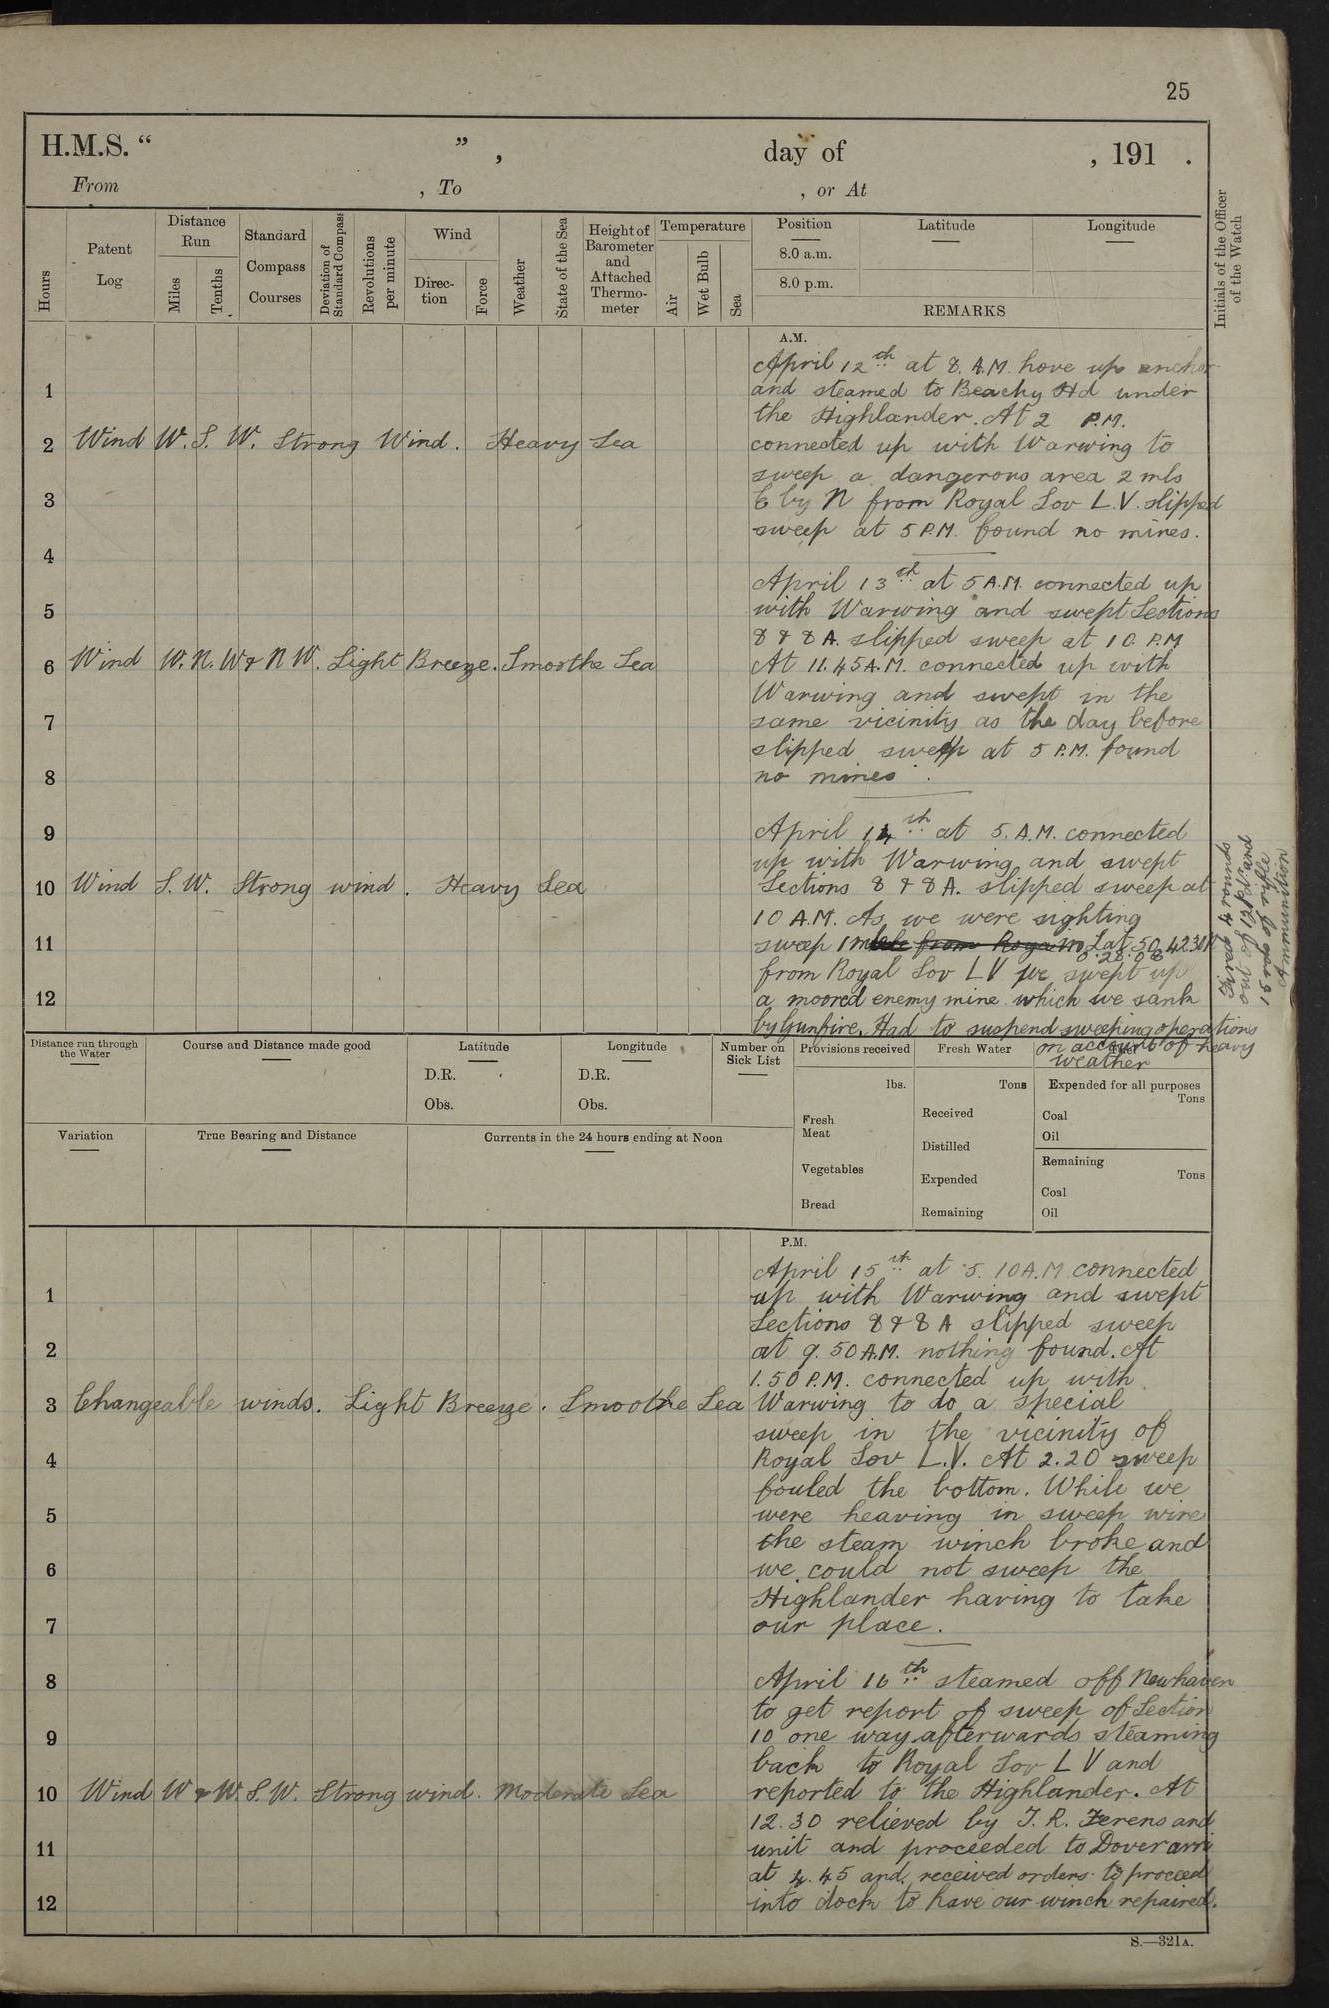 25
H.M.S. “ ” , day of , 191 .
From , To , or At
Hours
Patent Log
Distance Run
Miles
Tenths
Standard Compass Courses
Deviation of Standard Compass
Revolutions per minute
Wind
Direction
Force
Weather
State of the Sea
Height of Barometer and Attached Thermometer
Temperature
Air
Wet Bulb
Sea
Position
8.0 a.m.
8.0 p.m.
Latitude
Longitude
REMARKS
Initials of the Officer of the Watch
A.M.
April 12th at 8. A.M. hove up anchor
1
and steamed to Beachy Hd under
the Highlander. At 2 P.M.
2 Wind W. S. W. Strong Wind. Heavy Sea
connected up with Warwing to
sweep a dangerous area 2 mls
3
E by N from Royal Sov L.V. slipped
sweep at 5 P.M. found no mines.
4
April 13th at 5 A.M. connected up
5
with Warwing and swept Sections
8 & 8 A. slipped sweep at 10. P.M
6 Wind W. N. W & N W. Light Breeze. Smoothe Sea
At 11.45 A.M. connected up with
Warwing and swept in the
7
same vicinity as the day before
slipped sweep at 5 P.M. found
8
no mines.
9
April 14th at 5. A.M. connected
up with Warwing and swept
10 Wind S. W. Strong wind. Heavy Sea
Sections 8 & 8 A. slipped sweep at
10 A.M. As we were sighting
11
sweep 1 mile from Roya in Lat 50.42.30 N
0.28.08
from Royal Sov LV we swept up
12
a moored enemy mine which we sank
by Gunfire. Had to suspend sweeping operations
on account of heavy
weather
Fired 4 rounds
out of 12 pdr and
15 rds of rifle
Ammunition
Distance run through the Water
Course and Distance made good
Latitude
D.R.
Obs.
Longitude
D.R.
Obs.
Number on Sick List
Provisions received
lbs.
Fresh Meat
Vegetables
Bread
Fresh Water
Tons
Received
Distilled
Expended
Remaining
Fuel
Expended for all purposes
Tons
Coal
Oil
Remaining
Tons
Coal
Oil
Variation
True Bearing and Distance
Currents in the 24 hours ending at Noon
P.M.
April 15th at 5. 10 A.M connected
1
up with Warwing and swept
Sections 8 & 8 A slipped sweep
2
at 9. 50 A.M. nothing found. At
1.50 P.M. connected up with
3 Changeable winds. Light Breeze. Smoothe Sea
Warwing to do a special
sweep in the vicinity of
4
Royal Sov L.V. At 2.20 sweep
fouled the bottom. While we
5
were heaving in sweep wire
the steam winch broke and
6
we could not sweep the
Highlander having to take
7
our place.
8
April 16th steamed off Newhaven
to get report of sweep of Section
9
10 one way afterwards steaming
back to Royal Sov L V and
10 Wind W & W. S. W. Strong wind. Moderate Sea
reported to the Highlander. At
12.30 relieved by T. R. Ferens and
11
unit and proceeded to Dover arri
at 4.45 and received orders to proceed
12
into dock to have our winch repaired.
S.—321A.